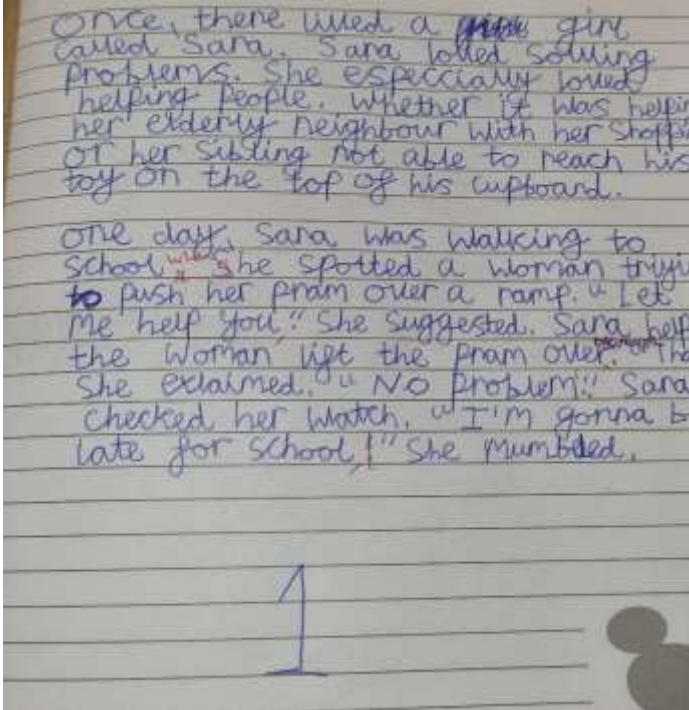 Once, there lived a girl
called Sara. Sara loved solving
problems. She especcially loved
helping people. Whether it was helpin
her elderly neighbour with her Shoppin
or her sibling not able to reach his
toy on the top of his cupboard.
One day, Sara was walking to
school when She spotted a woman tryi
to push her pram over a ramp. "Let
me help you," She suggested. Sara help
the woman lift the pram over. "Tha
She exlaimed. "No problem!" Sara
checked her watch. "I'm gonna b
late for school!" She mumbled.
1